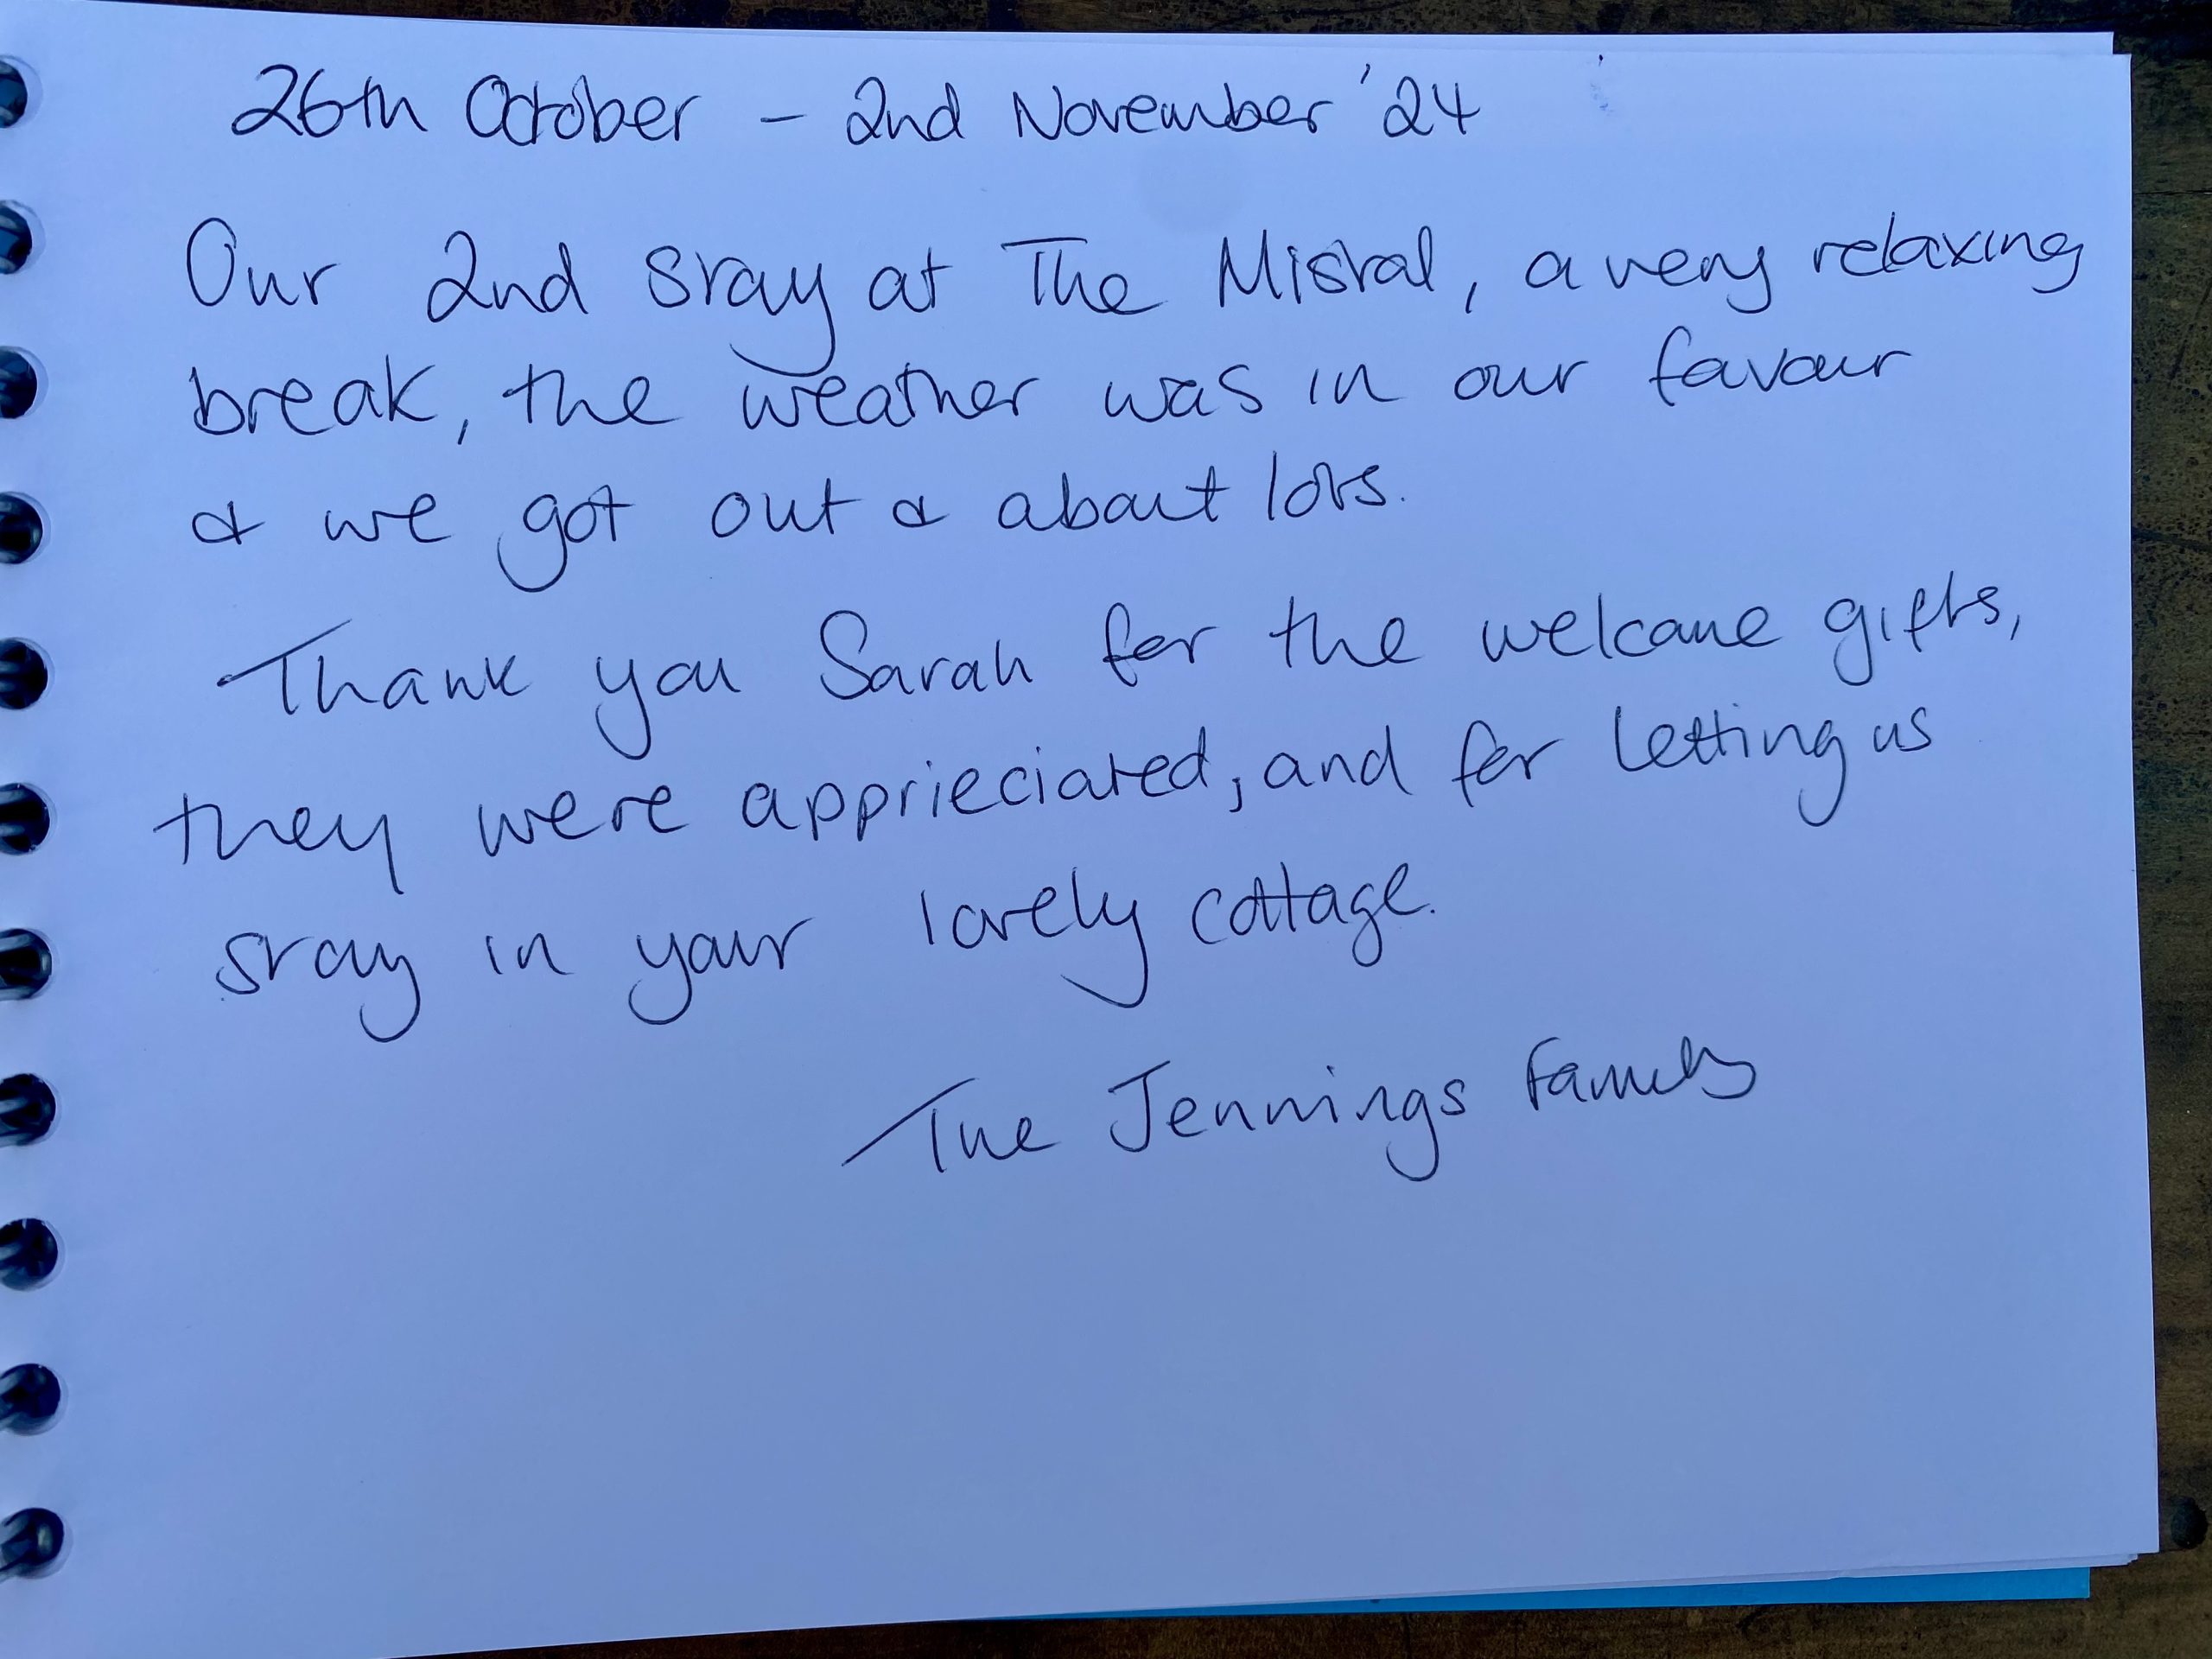 26th October - 2nd November '24
Our 2nd stay at The Mistral, a very relaxing
break, the weather was in our favour
& we got out & about lots.
Thank you Sarah for the welcome gifts,
they were apprieciated, and for letting us
stay in your lovely cottage.
The Jennings family